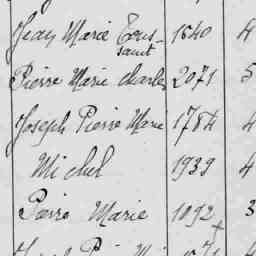 Jean Marie Tous- 1540 4
saint
Pierre Marie Charles 2071 5
Joseph Pierre Marie 1784 4
Michel 1939 4
Pierre Marie 1092 3